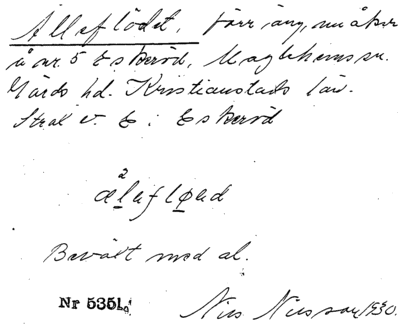 Älleflödet, förr äng, nu åker
å nr. 5 Eskeröd, Maglehems sn.
Gärds hd. Kristianstads län.
Strax v. E: Eskeröd
2
ælefløad
Beväxt med al.
Nr 5351.
Nils Nilsson, 1930.